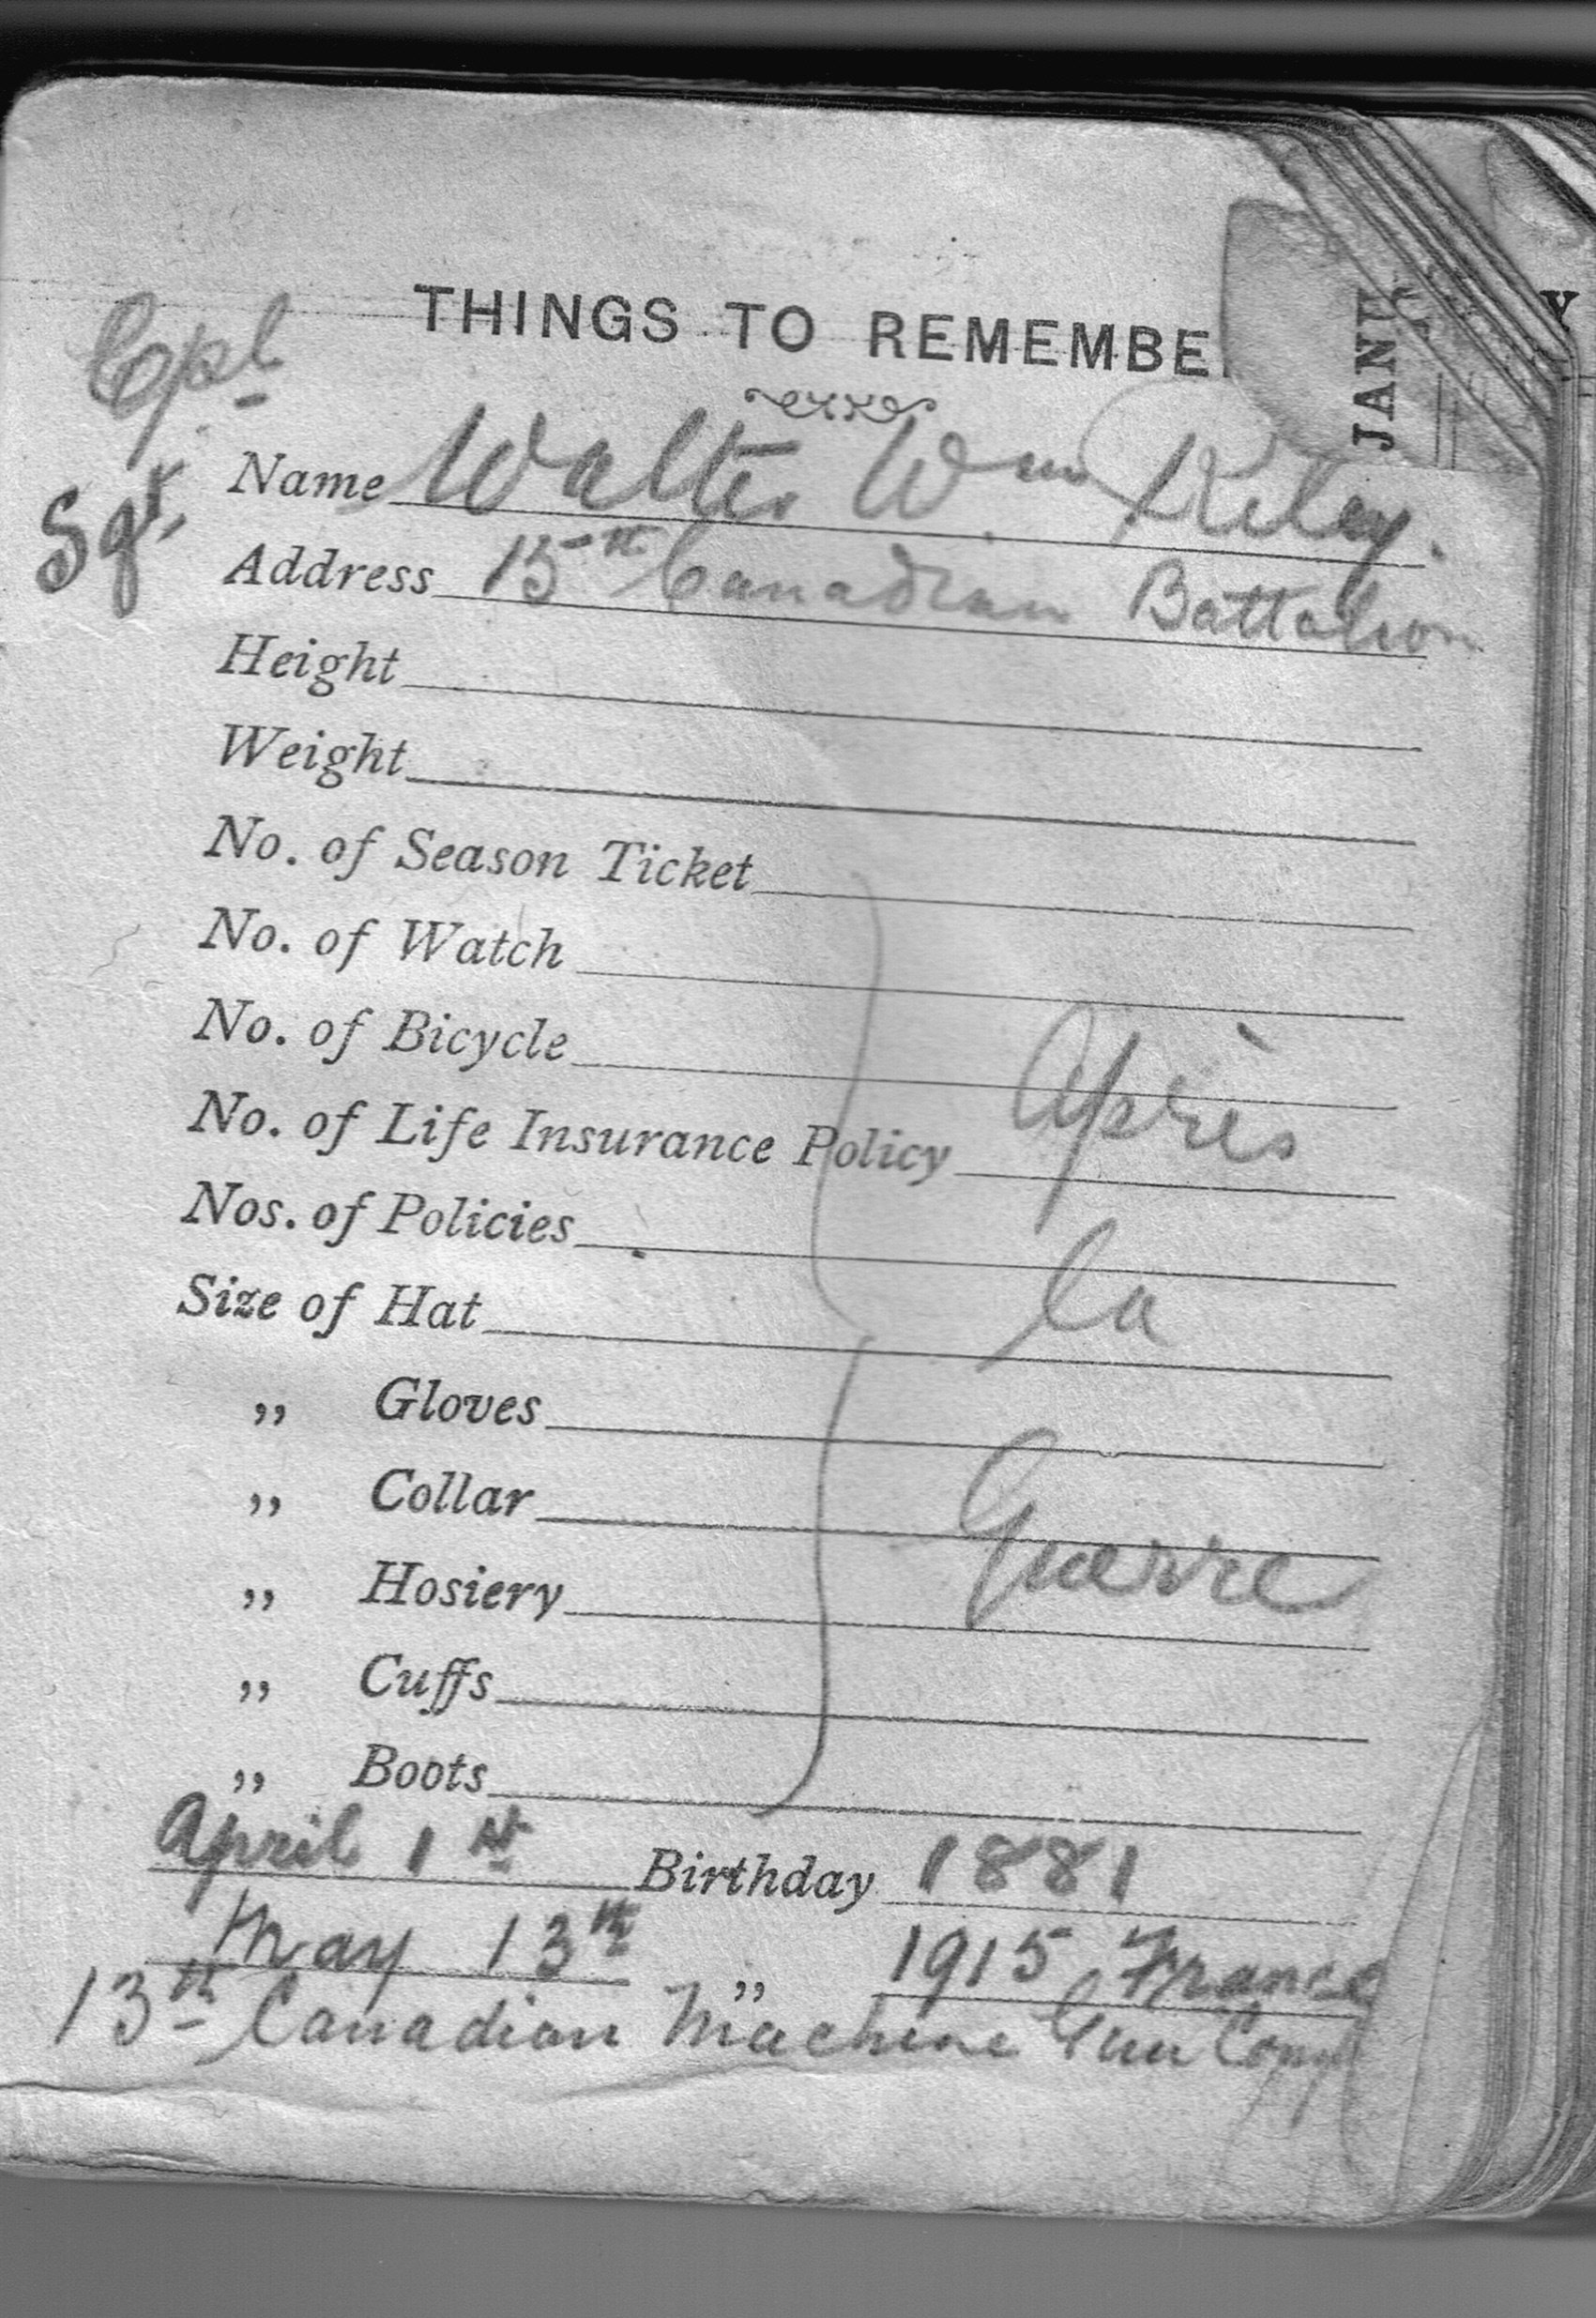 THINGS TO REMEMBE
JANU
Y
Cpl
Sgt.
Name Walter Wm Riley.
Address 15th Canadian Battalion
Height
Weight
No. of Season Ticket
No. of Watch
No. of Bicycle
No. of Life Insurance Policy
Après
Nos. of Policies
Size of Hat
la
„ Gloves
„ Collar
„ Hosiery
Guerre
„ Cuffs
„ Boots
April 1st Birthday 1881
May 13th „ 1915 France
13th Canadian Machine Gun Compy